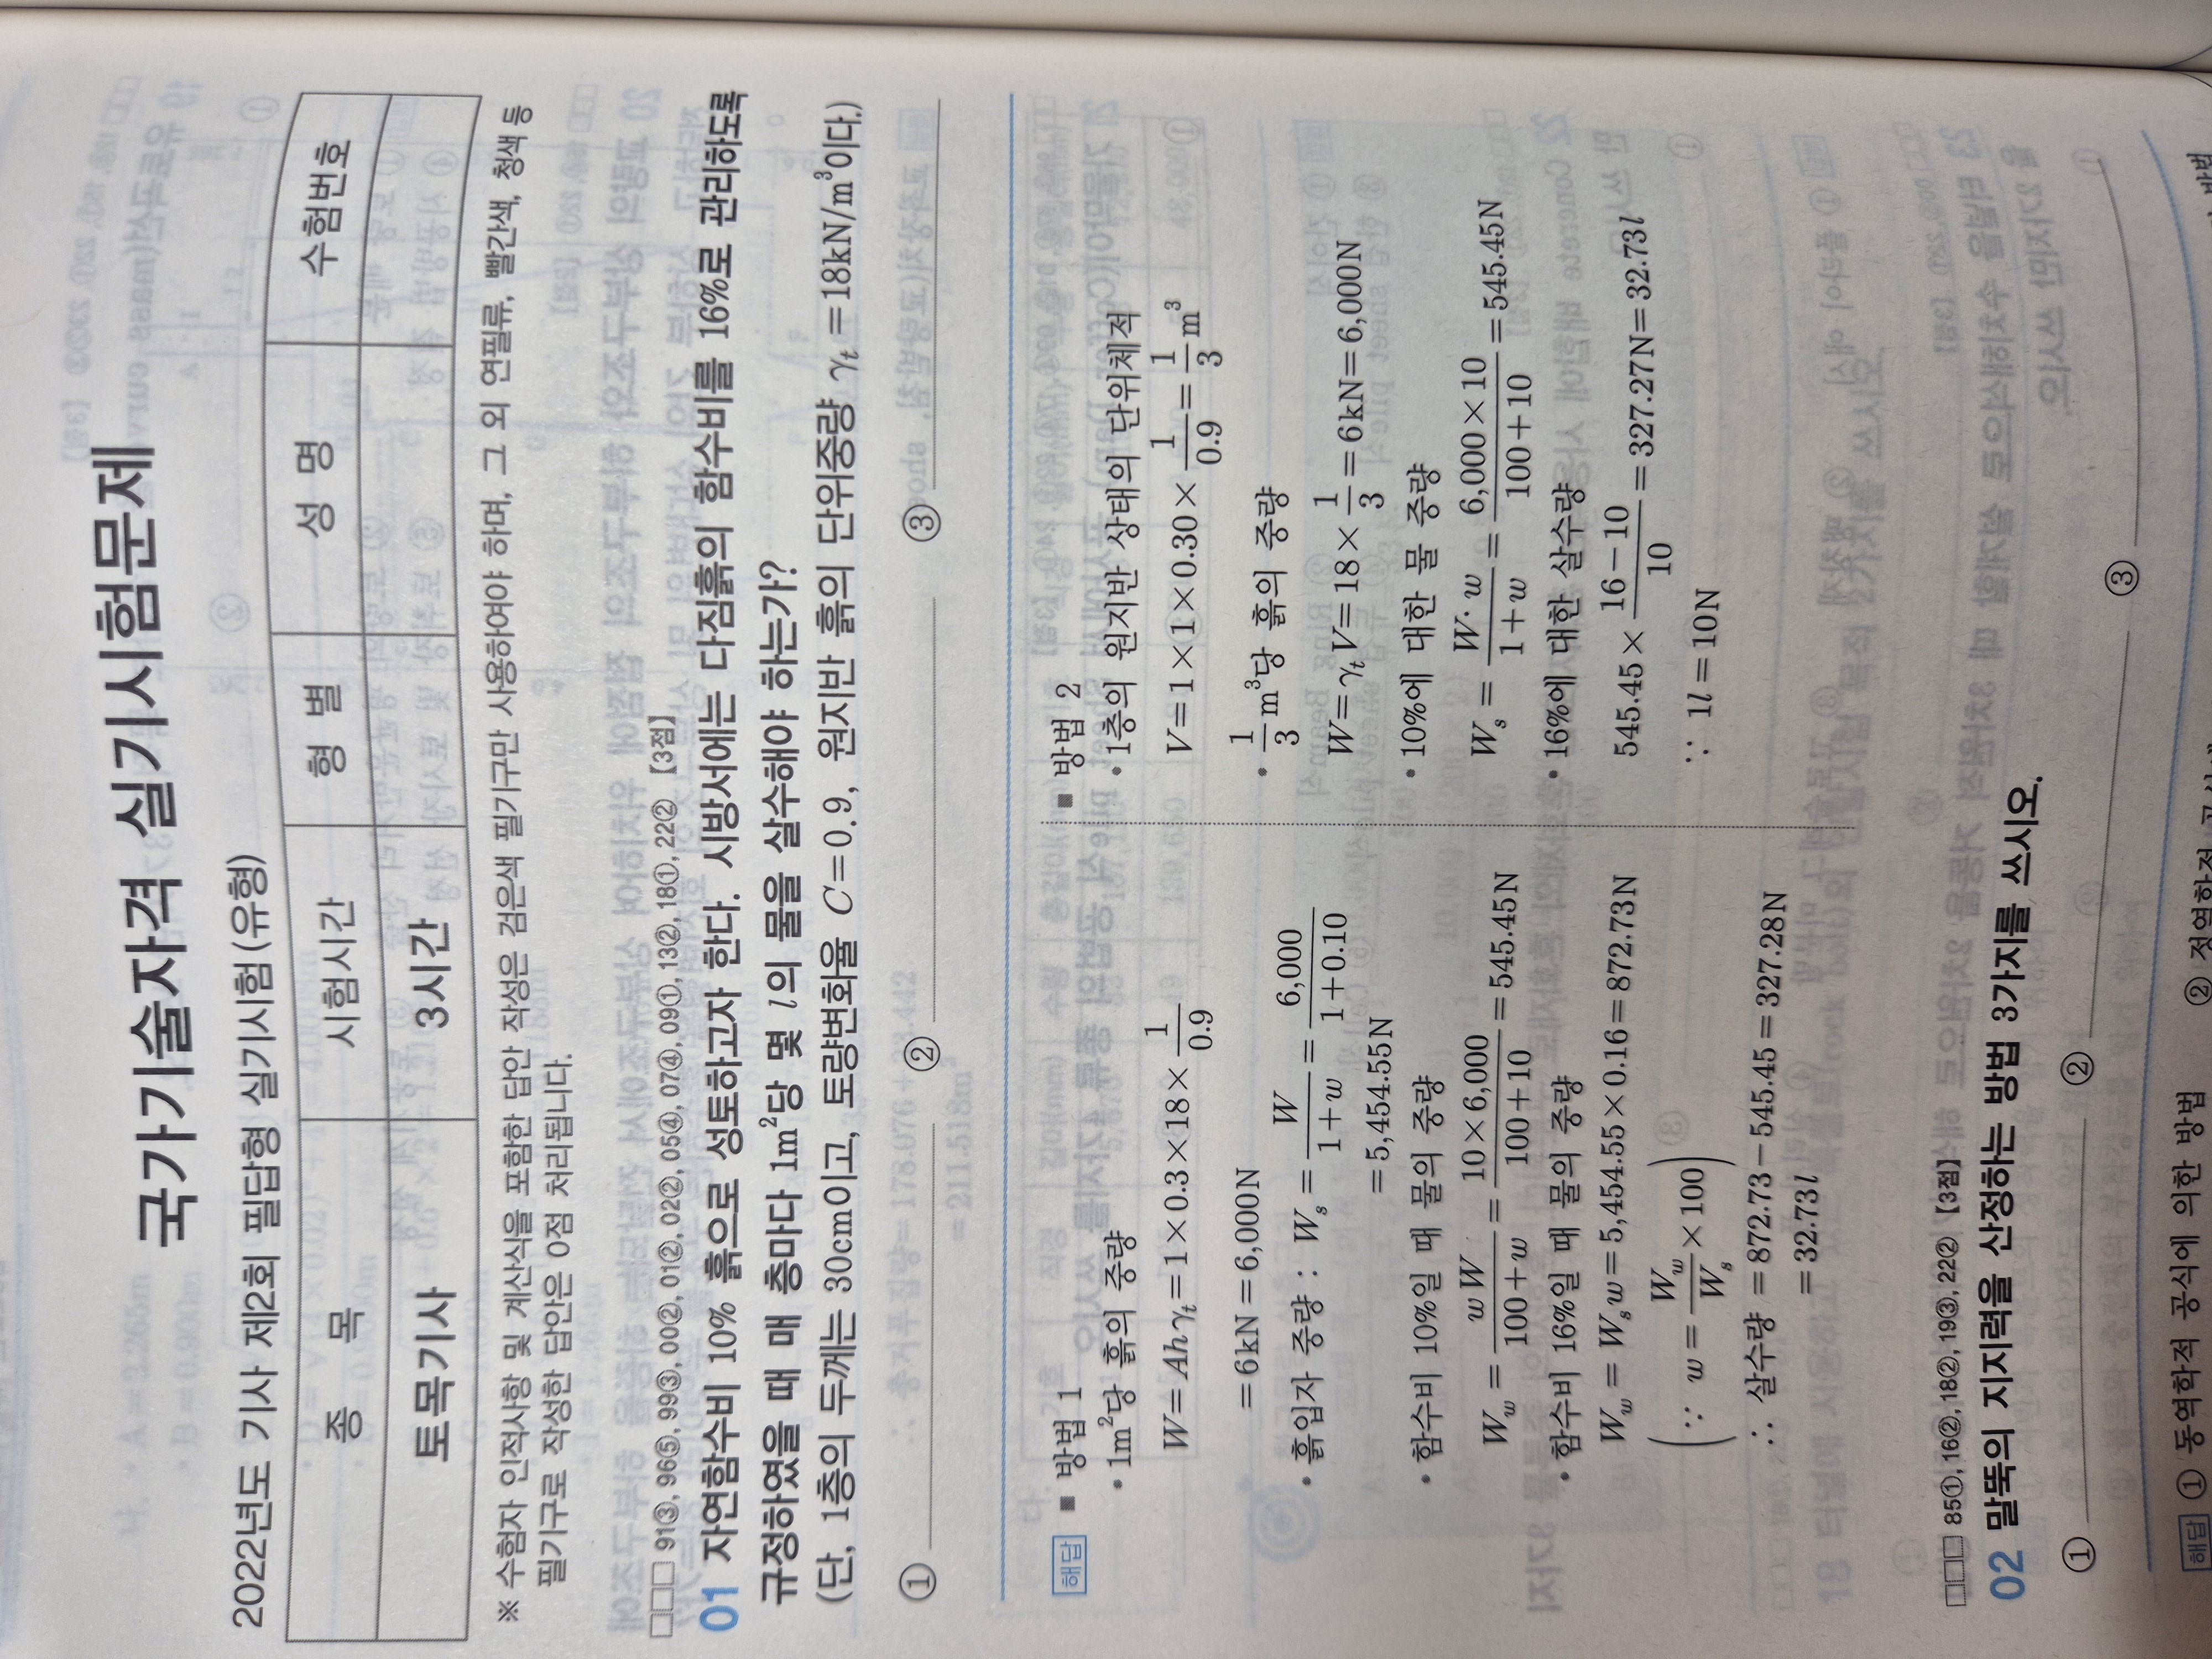 국가기술자격 실기시험문제
2022년도 기사 제2회 필답형 실기시험 (유형)
종 목 시험시간 형 별 성 명 수험번호
토목기사 3시간
※ 수험자 인적사항 및 계산식을 포함한 답안 작성은 검은색 필기구만 사용하여야 하며, 그 외 연필류, 빨간색, 청색 등
필기구로 작성한 답안은 0점 처리됩니다.
□□□ 91③, 96⑤, 99③, 00②, 01②, 02②, 05④, 07④, 09①, 13②, 18①, 22② 【3점】
01 자연함수비 10% 흙으로 성토하고자 한다. 시방서에는 다짐흙의 함수비를 16%로 관리하도록
규정하였을 때 매 층마다 1m²당 몇 l의 물을 살수해야 하는가?
(단, 1층의 두께는 30cm이고, 토량변화율 C=0.9, 원지반 흙의 단위중량 γt=18kN/m³이다.)
① ② ③
해답 ■ 방법 1
• 1m²당 흙의 중량
W=Ahγt=1×0.3×18×1/0.9
=6kN=6,000N
• 흙입자 중량 : Ws=W/(1+w)=6,000/(1+0.10)
=5,454.55N
• 함수비 10%일 때 물의 중량
Ww=wW/(100+w)=10×6,000/(100+10)=545.45N
• 함수비 16%일 때 물의 중량
Ww=Wsw=5,454.55×0.16=872.73N
(∵ w=Ww/Ws×100)
∴ 살수량 =872.73−545.45=327.28N
=32.73l
■ 방법 2
• 1층의 원지반 상태의 단위체적
V=1×1×0.30×1/0.9=1/3m³
• 1/3m³당 흙의 중량
W=γtV=18×1/3=6kN=6,000N
• 10%에 대한 물 중량
Ws=W·w/(1+w)=6,000×10/(100+10)=545.45N
• 16%에 대한 살수량
545.45×(16−10)/10=327.27N=32.73l
∵ 1l=10N
□□□ 85①, 16②, 18②, 19③, 22② 【3점】
02 말뚝의 지지력을 산정하는 방법 3가지를 쓰시오.
① ② ③
해답 ① 동역학적 공식에 의한 방법 ② 정역학적
방법